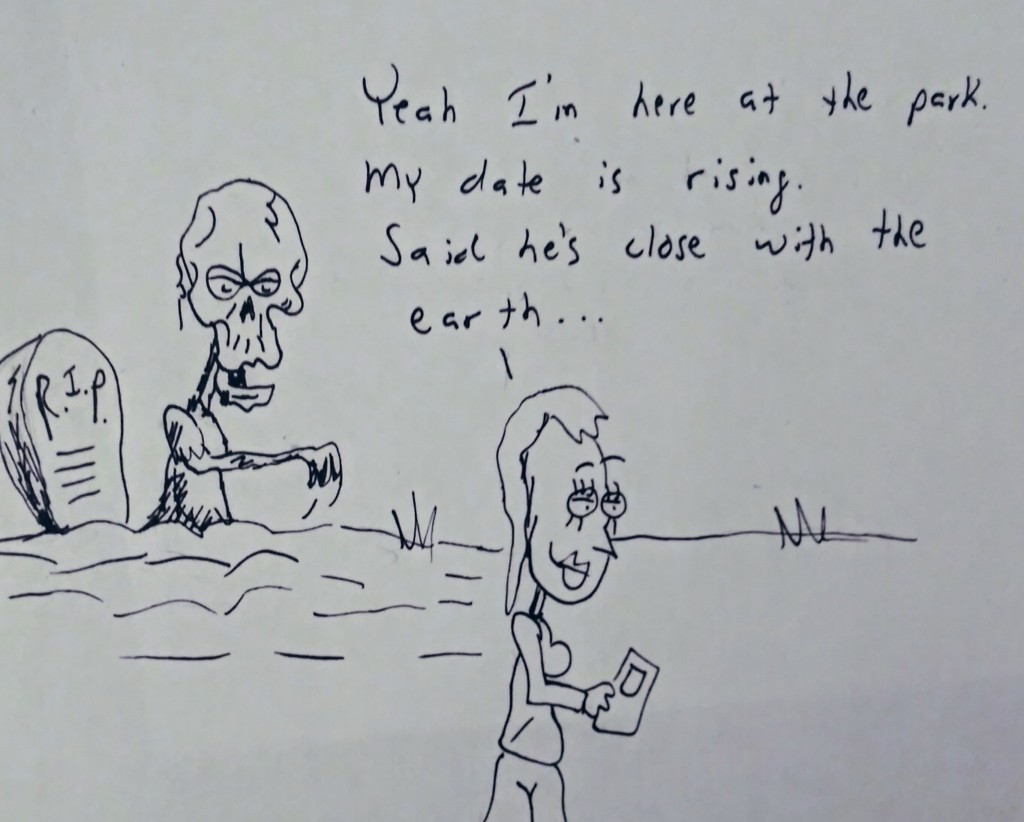 Yeah I'm here at the park.
My date is rising.
Said he's close with the
earth...
R.I.P.